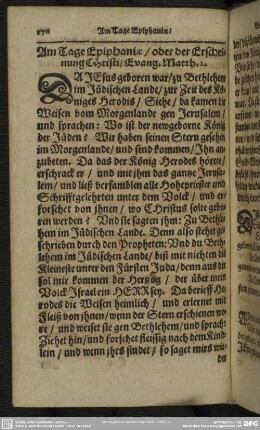 270 Am Tage Epiphaniæ/
Am Tage Epiphaniæ / oder der Erschei-
nung Christi / Evang. Matth. 2.
DA JEsus geboren war/zu Bethlehem
im Jüdischen Lande/ zur Zeit des Kö-
niges Herodis / Siehe / da kamen die
Weisen vom Morgenlande gen Jerusalem /
und sprachen: Wo ist der newgeborne König
der Jüden? Wir haben seinen Stern gesehen
im Morgenlande / und sind kommen / Ihn an-
zubeten. Da das der König Herodes hörete /
erschrack er / und mit jhm das gantze Jerusa-
lem / und ließ versamlen alle Hohepriester und
Schrifftgelehrten unter dem Volck / und er-
forschet von jhnen / wo Christus solte gebo-
ren werden? Und sie sagten jhm: Zu Bethle-
hem im Jüdischen Lande. Denn also stehet ge-
schrieben durch den Propheten: Vnd du Beth-
lehem im Jüdischen Lande / bist mit nichten die
Kleineste unter den Fürsten Juda / denn aus dir
sol mir kommen der Hertzog / der über mein
Volck Israel ein HERR sey. Da berieff He-
rodes die Weisen heimlich / und erlernet mit
Fleiß von jhnen / wenn der Stern erschienen we-
re / und weiset sie gen Bethlehem / und sprach:
Ziehet hin / und forschet fleissig nach dem Kind-
lein / und wenn jhrs findet / so saget mirs wie-
der